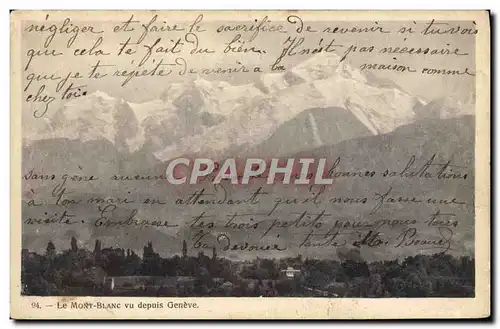 négliger et faire le sacrifice de revenir si tu vois
que cela te fait du bien. Il n'est pas nécessaire
que je te répète de venir a la maison comme
chez toi
sans gène aucune bonnes salutations
à ton mari en attendant qu'il nous fasse une
visite. Embrasse tes trois petits pour nous tous
ta dévouée tante
CPARAMA.COM
94. - Le MONT-BLANC vu depuis Genève.